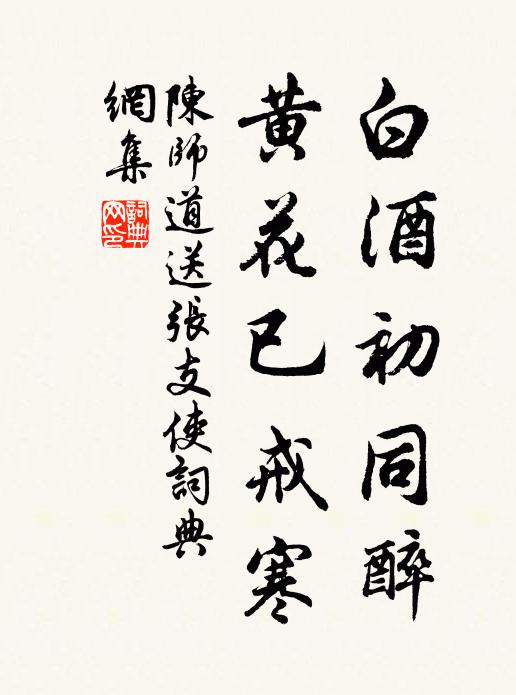 白酒初同醉
黃花已戒寒
陳師道送張支使詞典
網集
詞典
网印